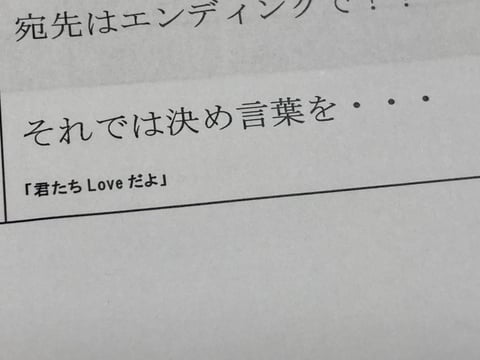 宛先はエンディングで！！
それでは決め言葉を・・・
「君たちLoveだよ」